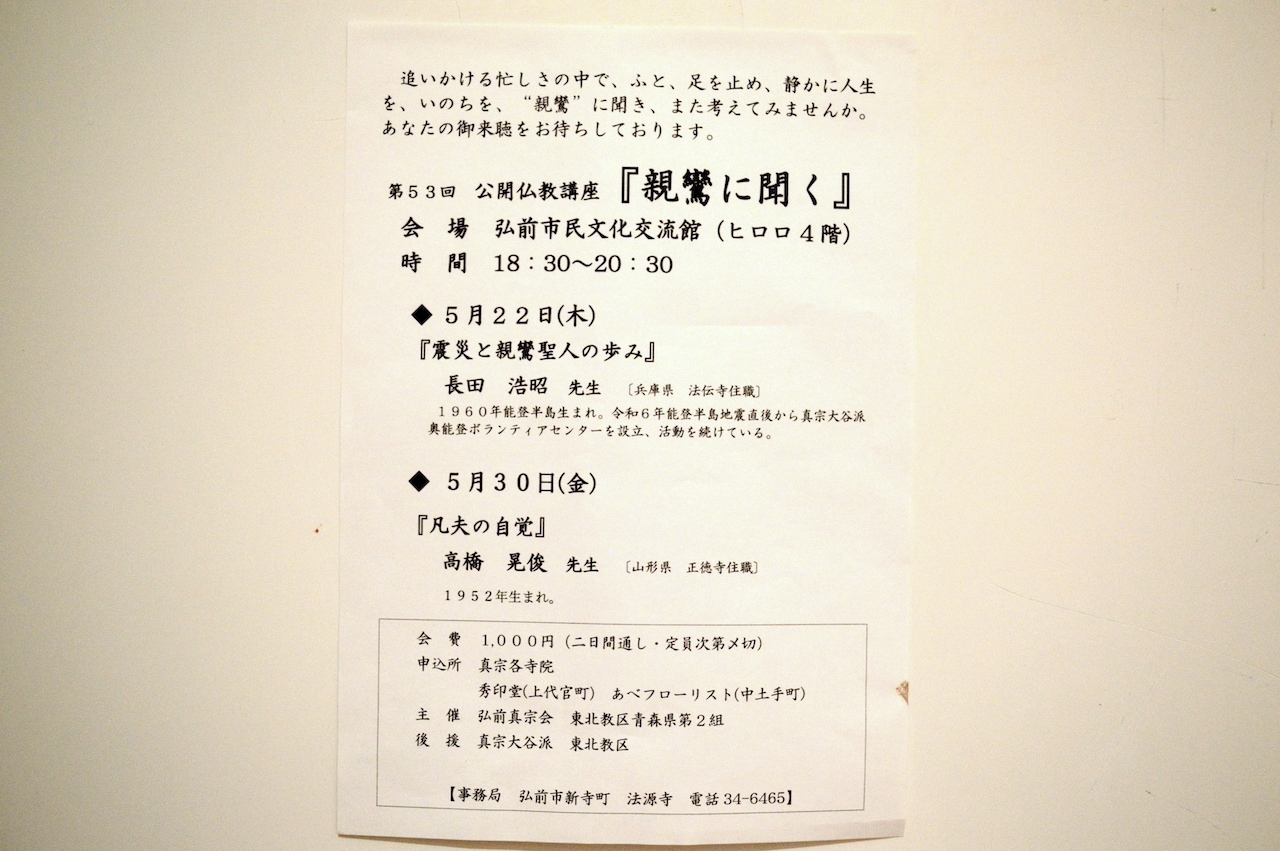 追いかける忙しさの中で、ふと、足を止め、静かに人生
を、いのちを、“親鸞”に聞き、また考えてみませんか。
あなたの御来聴をお待ちしております。
第５３回　公開仏教講座『親鸞に聞く』
会　場　弘前市民文化交流館（ヒロロ４階）
時　間　18：30～20：30
◆ ５月２２日(木)
『震災と親鸞聖人の歩み』
長田　浩昭　先生　〔兵庫県　法伝寺住職〕
１９６０年能登半島生まれ。令和６年能登半島地震直後から真宗大谷派
奥能登ボランティアセンターを設立、活動を続けている。
◆ ５月３０日(金)
『凡夫の自覚』
高橋　晃俊　先生　〔山形県　正徳寺住職〕
１９５２年生まれ。
会　費　1,０００円（二日間通し・定員次第〆切）
申込所　真宗各寺院
秀印堂(上代官町)　あべフローリスト(中土手町)
主　催　弘前真宗会　東北教区青森県第２組
後　援　真宗大谷派　東北教区
【事務局　弘前市新寺町　法源寺　電話 34-6465】